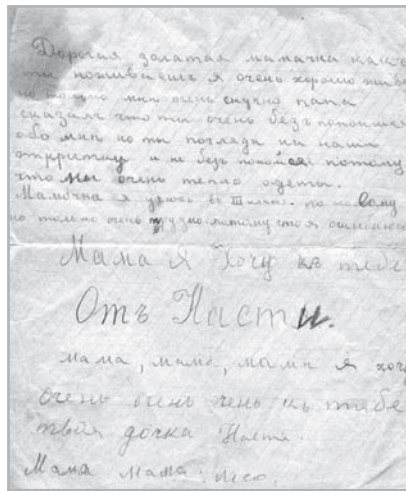 Дорогая золатая мамачка какъ
ти поживаешь я очень хорошо живу
но только мнѣ очень скучно папа
сказалъ что ти очень безъ покоишся
обо мнѣ но ти погляди на наши
откритку и не безъ покойся потому
что мы очень тепло одеты.
Мамочка я учюсь во III классе. по новому
но только очень трудно потому что я ошибаюсь
Мама я хочу къ тебе
Отъ Насти.
мама, мама, мама я хочу
очень очень чень къ тебе
твоя дочка Настя.
Мама мама